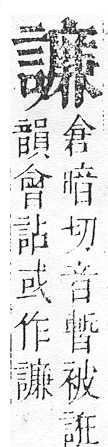 譧
倉暗切音暫被誑
韻會詀或作謙